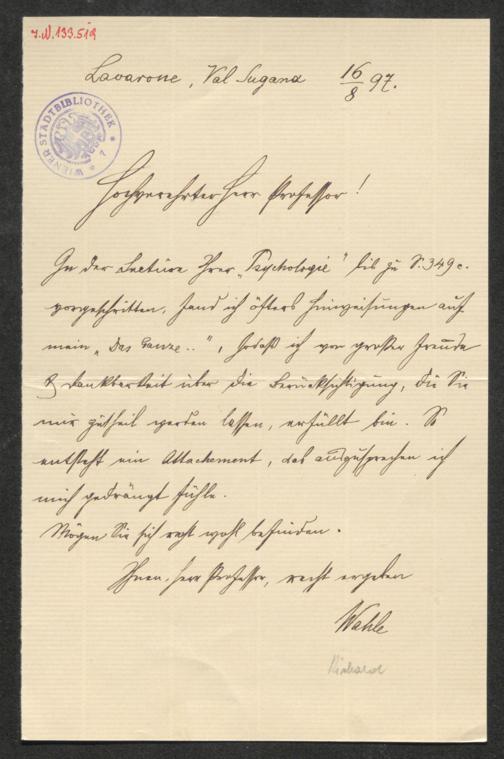 I.N. 133.519
Lavarone, Val Sugana 16/8 97.
WIENER STADTBIBLIOTHEK * 7 *
Hochverehrter Herr Professor!
In der Lectüre Ihrer „Psychologie" bis zu S. 349
vorgeschritten, fand ich öfters Hinweisungen auf
mein „Das Ganze..", sodaß ich von großer Freude
& Dankbarkeit über die Berücksichtigung, die Sie
mir zutheil werden lassen, erfüllt bin. So
entsteht ein Attachement, das auszusprechen ich
mich gedrängt fühle.
Mögen Sie sich recht wohl befinden.
Ihnen, Herr Professor, recht ergeben
Wahle
Richard